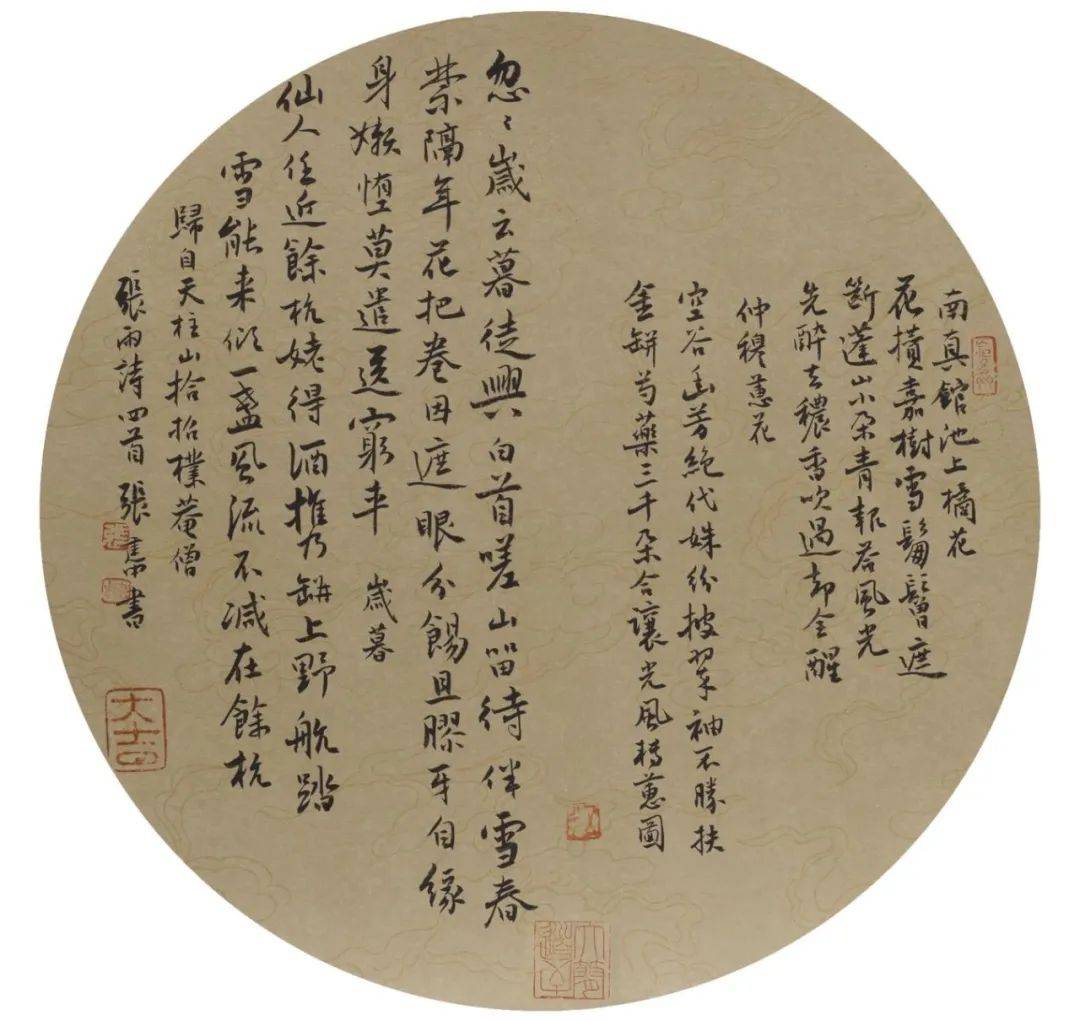 南真館池上摘花
花攢嘉樹雪鬅鬙遮
斷蓬山小朵青報荅風光
先醉去穠香吹過却全醒
仲穆蕙花
空谷幽芳絕代姝紛披翠袖不勝扶
金缾芍藥三千朵合讓光風轉蕙圖
忽〻歲云暮徒興白首嗟山留待伴雪春
禁隔年花把卷因遮眼分餳且膠牙自緣
身嬾墮莫遣送窮車 歲暮
仙人住近餘杭姥得酒推乃缾上野航踏
雪能来傾一盞風流不減在餘杭
歸自天柱山拾招樸菴僧
張雨詩四首 張書